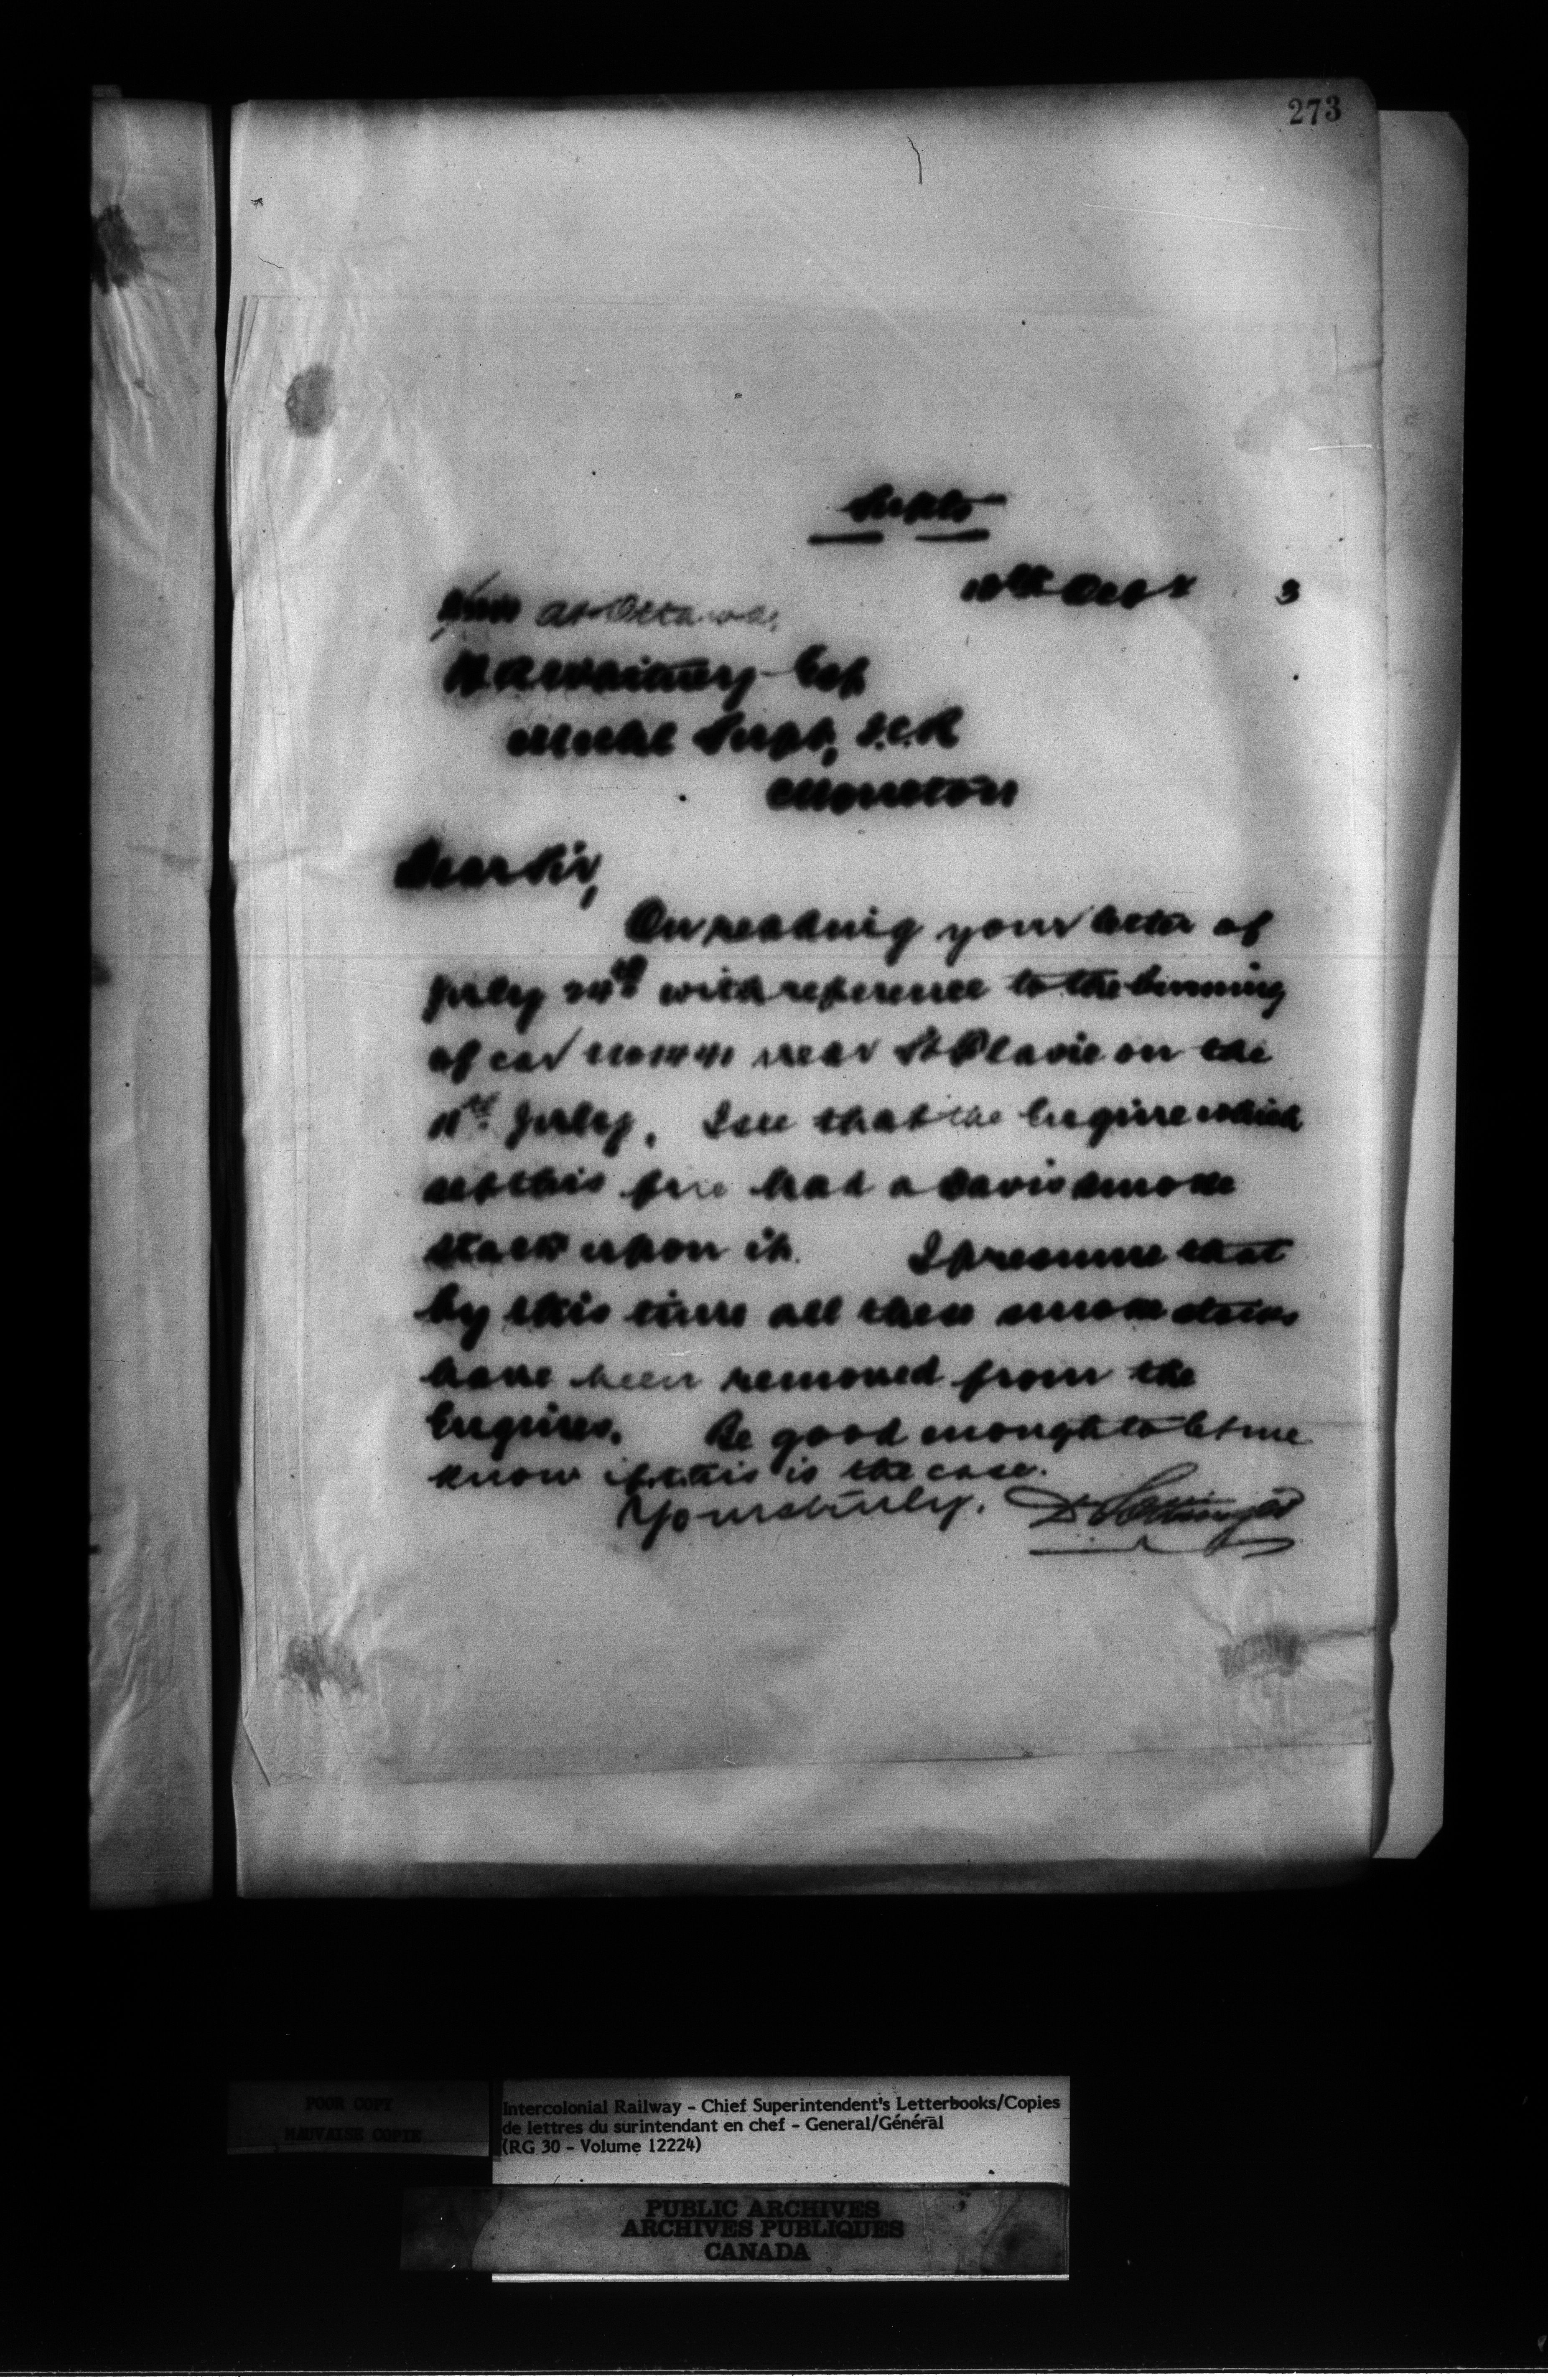 273
Supts
10th Octr 3
at Ottawa,
H A Whitney Esq
Mechl Supt, I.C.R
Moncton
Dear Sir,
On reading your letter of
July 24th with reference to the burning
of car No near St Flavie on the
11th July. I see that the Engine which
set this fire had a Davis smoke
stack upon it. I presume that
by this time all these smoke stacks
have been removed from the
Engines. Be good enough to let me
know if this is the case.
Yours truly, D Pottinger
POOR COPY
MAUVAISE COPIE
Intercolonial Railway - Chief Superintendent's Letterbooks/Copies
de lettres du surintendant en chef - General/Général
(RG 30 - Volume 12224)
PUBLIC ARCHIVES
ARCHIVES PUBLIQUES
CANADA